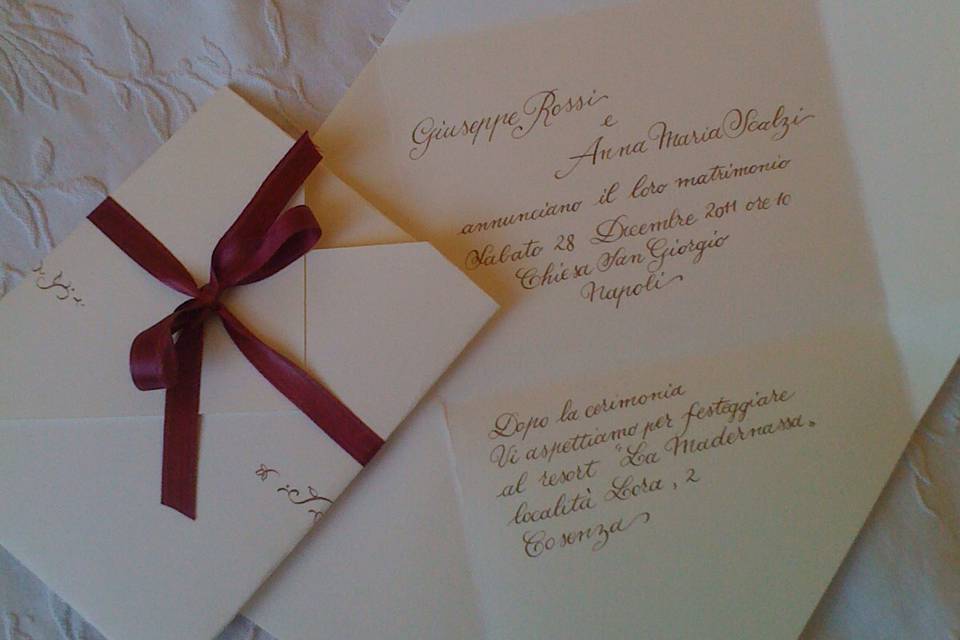 Giuseppe Rossi
e
Anna Maria Scalzi
annunciano il loro matrimonio
Sabato 28 Dicembre 2011 ore 10
Chiesa San Giorgio
Napoli
Dopo la cerimonia
Vi aspettiamo per festeggiare
al resort "La Madernassa"
località Lora, 2
Cosenza